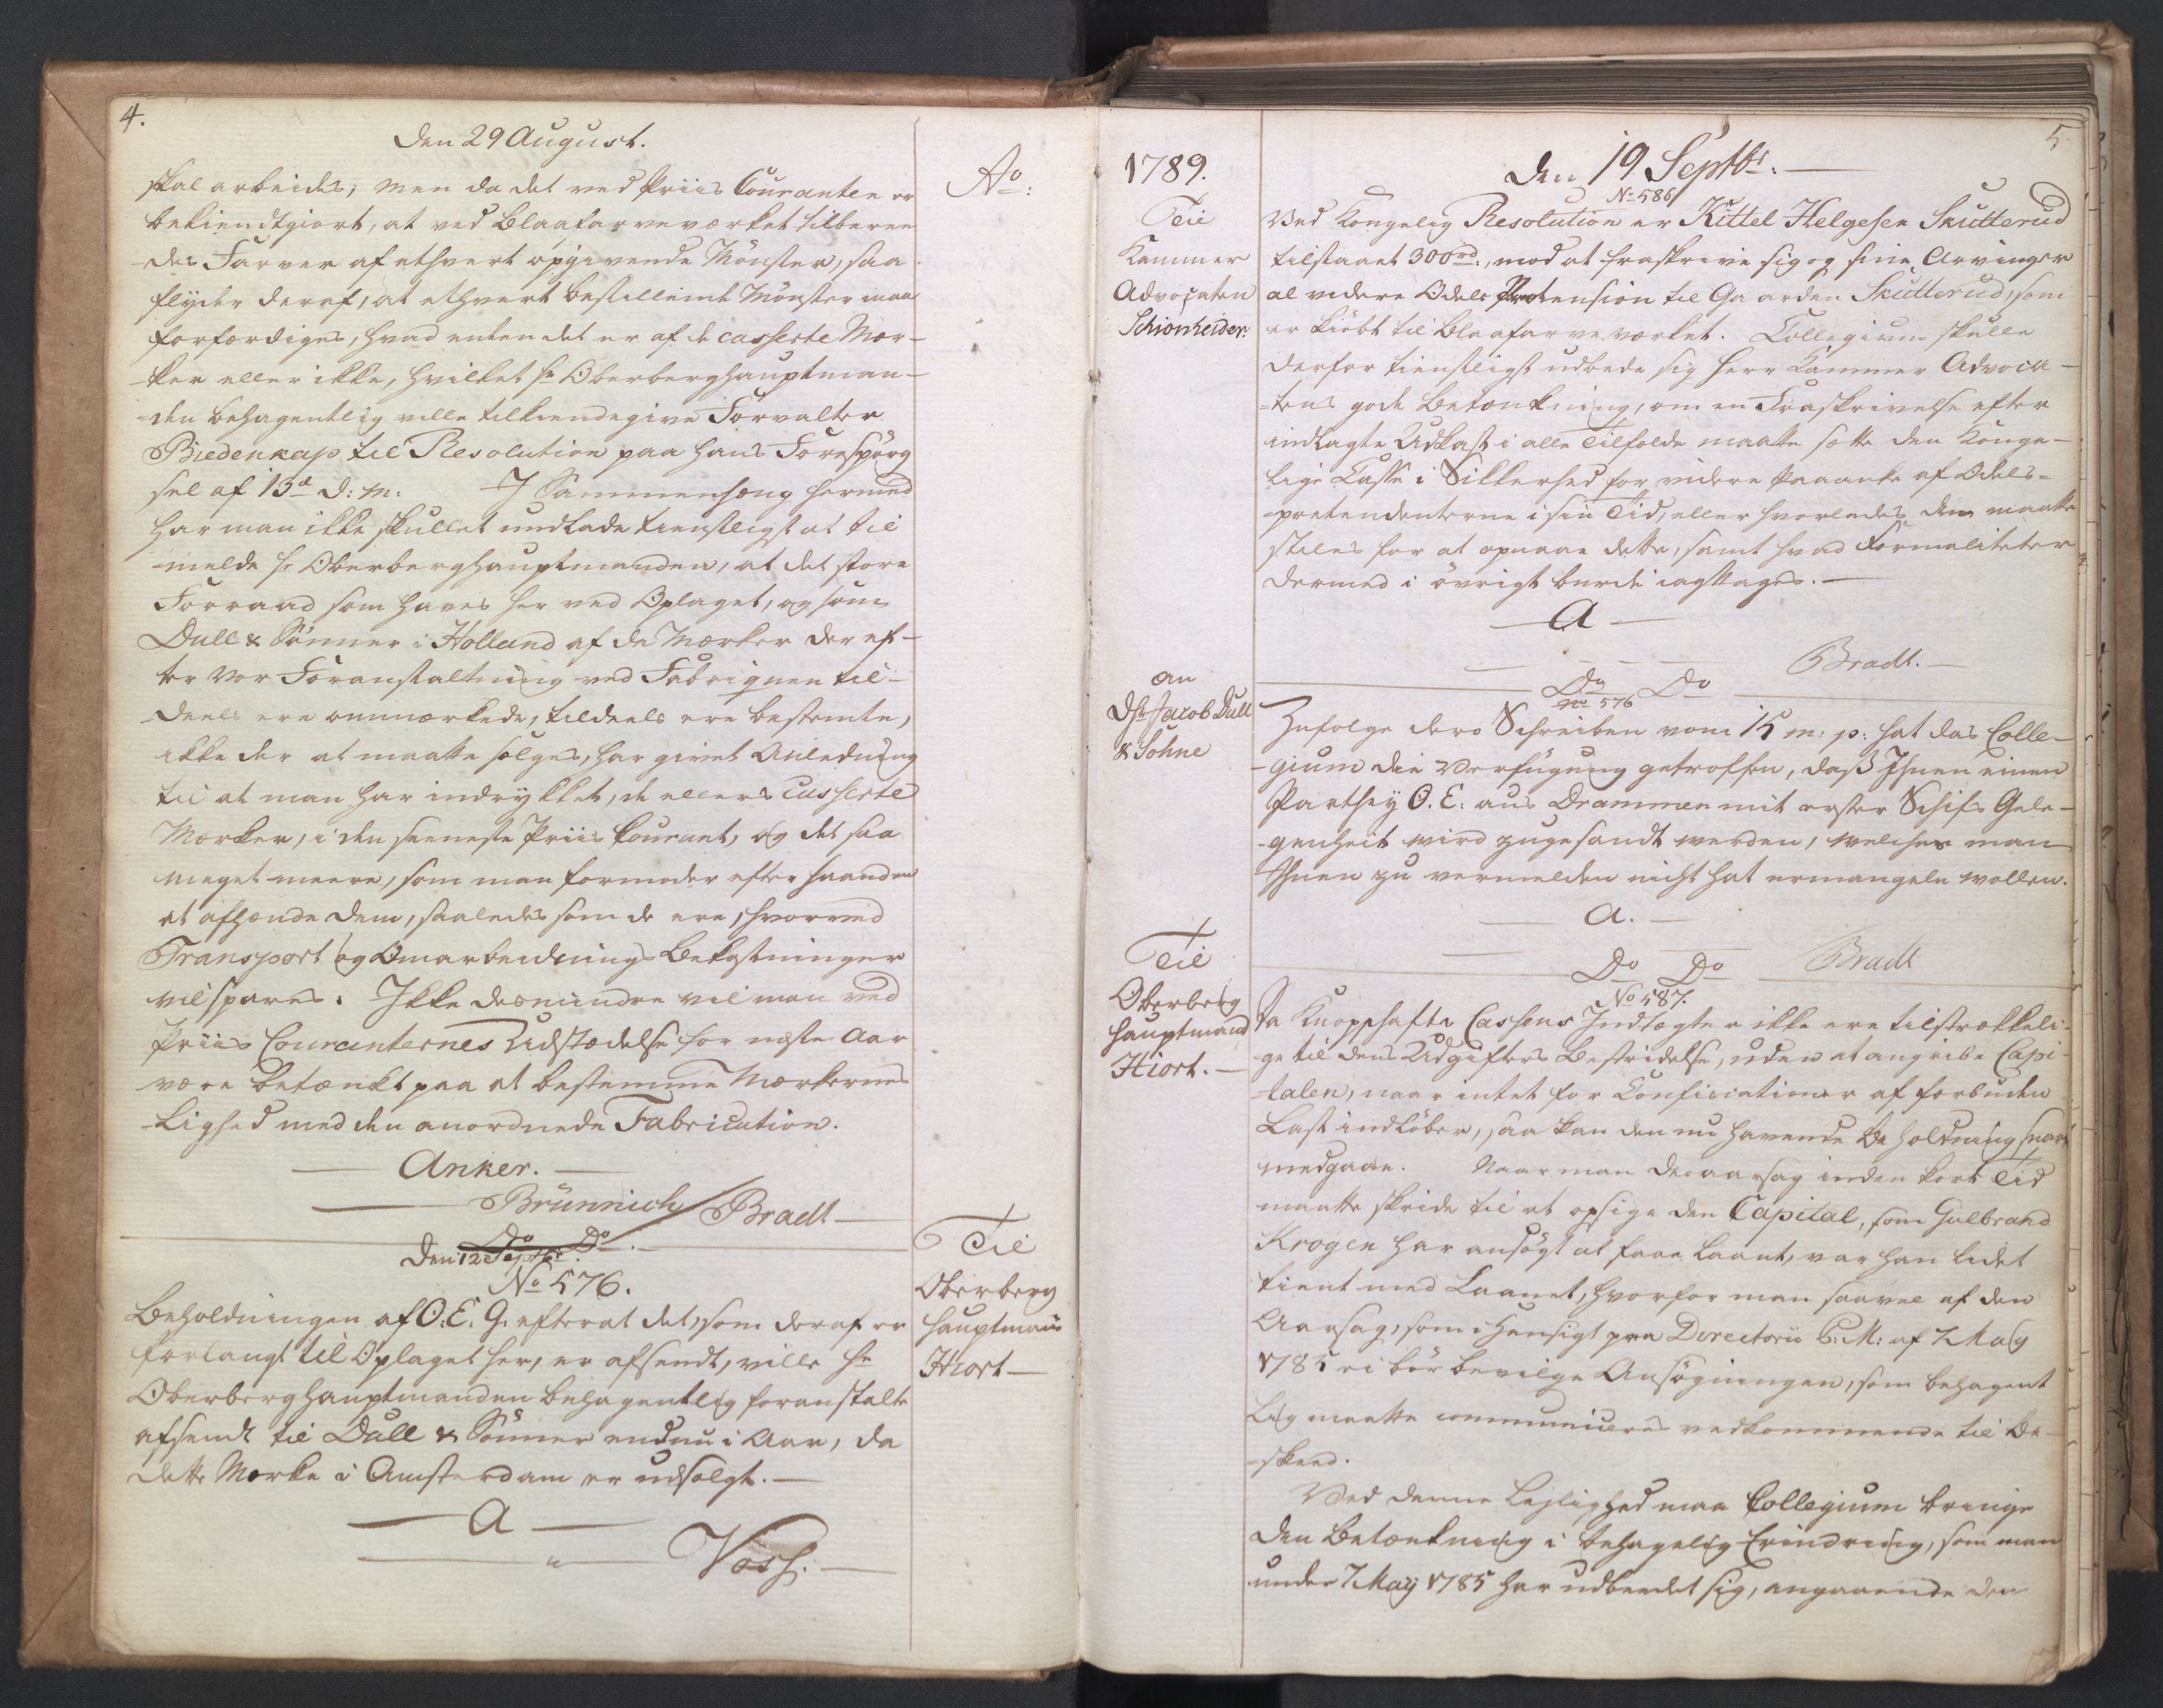 4.
Den 29 August.
skal arbeides; men da det ved Priis Couranten er
bekiendtgiort, at ved Blaafarveværket tilbere-
des Farver af ethvert opgivende Mønster, saa
flyder deraf, at ethvert bestillende Mønster maa
forfærdiges, hvad enten det er af de casserte Mær-
ker eller ikke, hvilket Hr Oberberghauptman-
den behagentlig ville tilkiendegive Forvalter
Biedenkap til Resolution paa hans Forespørg
sel af 13d d: M: I Sammenhæng hermed
har man ikke skullet undlade tienstligst at til
melde Hr Oberberghauptmanden, at det store
Forraad som haves her ved Oplaget, og hos
Dull & Sønner i Holland af de Mærker der ef-
ter vor Foranstaltning ved Fabriquen til-
deels ere ommærkede, tildeels ere bestemte,
ikke der at maatte sælges, har givet Anledning
til at man har indrykket, de ellers casserte
Mærker, i den seeneste Priis Courant, og det saa
meget meere, som man formoder efter haanden
at afhænde dem, saaledes som de ere, hvorved
Transport og Omarbeidnings Bekostninger
vil spares. Ikke desmindre vil man ved
Priis Couranternes Udstædelse for næste Aar
være betænkt paa at bestemme Mærkernes
Lighed med den anordnede Fabrication.
Anker.
Brünnich / Bradt
Do Do
Den 12 Septbr.
No 576.
Beholdningen af O. E. G. efterat det, som deraf er
forlangt til Oplaget her, er afsendt, ville Hr
Oberberghauptmanden behagentlig foranstalte
afsendt til Dull & Sønner endnu i Aar, da
dette Mærke i Amsterdam er udsolgt.
A
" Voss.
Ao:
Til
Oberberg
hauptmand
Hiort
1789.
Til
Kammer
Advocaten
Schionheider.
5.
Den 19 Septbr.
No 586
Ved Kongelig Resolution er Kittel Helgesen Skutterud
tilstaaet 300rd., mod at fraskrive sig og sine Arvinger
al videre Odels Prætension til Gaarden Skutterud, som
er kiøbt til Blaafarveværket. Collegium skulle
derfor tienstligst udbede sig Herr Kammer Advoca-
tens gode Betænkning, om en Fraskrivelse efter
indlagte Udkast i alle Tilfælde maatte sætte den Konge-
lige Casse i Sikkerhed for videre Paaanke af Odels-
prætendenterne i sin Tid, eller hvorledes den maatte
stiles for at opnaae dette, samt hvad Formaliteter
dermed i øvrigt burde iagttages.
A
Bradt.
an
Dhr Jacob Dull
& Sohne
Do Do
No 576
Zufolge dero Schreiben vom 15 m: p: hat das Colle-
gium die Verfügung getroffen, daß Ihnen einen
Parthey O. E: aus Drammen mit erster Schifs Gele-
genheit wird zugesandt werden, welches man
Ihnen zu vermelden nicht hat ermangeln wollen.
A.
Bradt
Til
Oberberg
hauptmand
Hiort.
Do Do
No 587.
Da Knapshafts Cassens Indtægter ikke ere tilstrækkeli-
ge til dens Udgifters Bestridelse, uden at angribe Capi-
talen, naar intet for Confiscationer af forbuden
Last indløber, saa kan den nu havende Beholdning snart
medgaae. Naar man desaarsag inden kort Tid
maatte skride til at opsige den Capital, som Gulbrand
Krogen har ansøgt at faae laant, var han lidet
tient med Laanet, hvorfor man saavel af den
Aarsag, som i Hensigt paa Directorii P. M: af 7 May
1785 ei bør bevilge Ansøgningen, som behagent
lig maatte communiceres vedkommende til Be-
skeed.
Ved denne Leylighed maa Collegium bringe
den Betænkning i behagelig Erindring, som man
under 7 May 1785 har udbedet sig, angaaende den